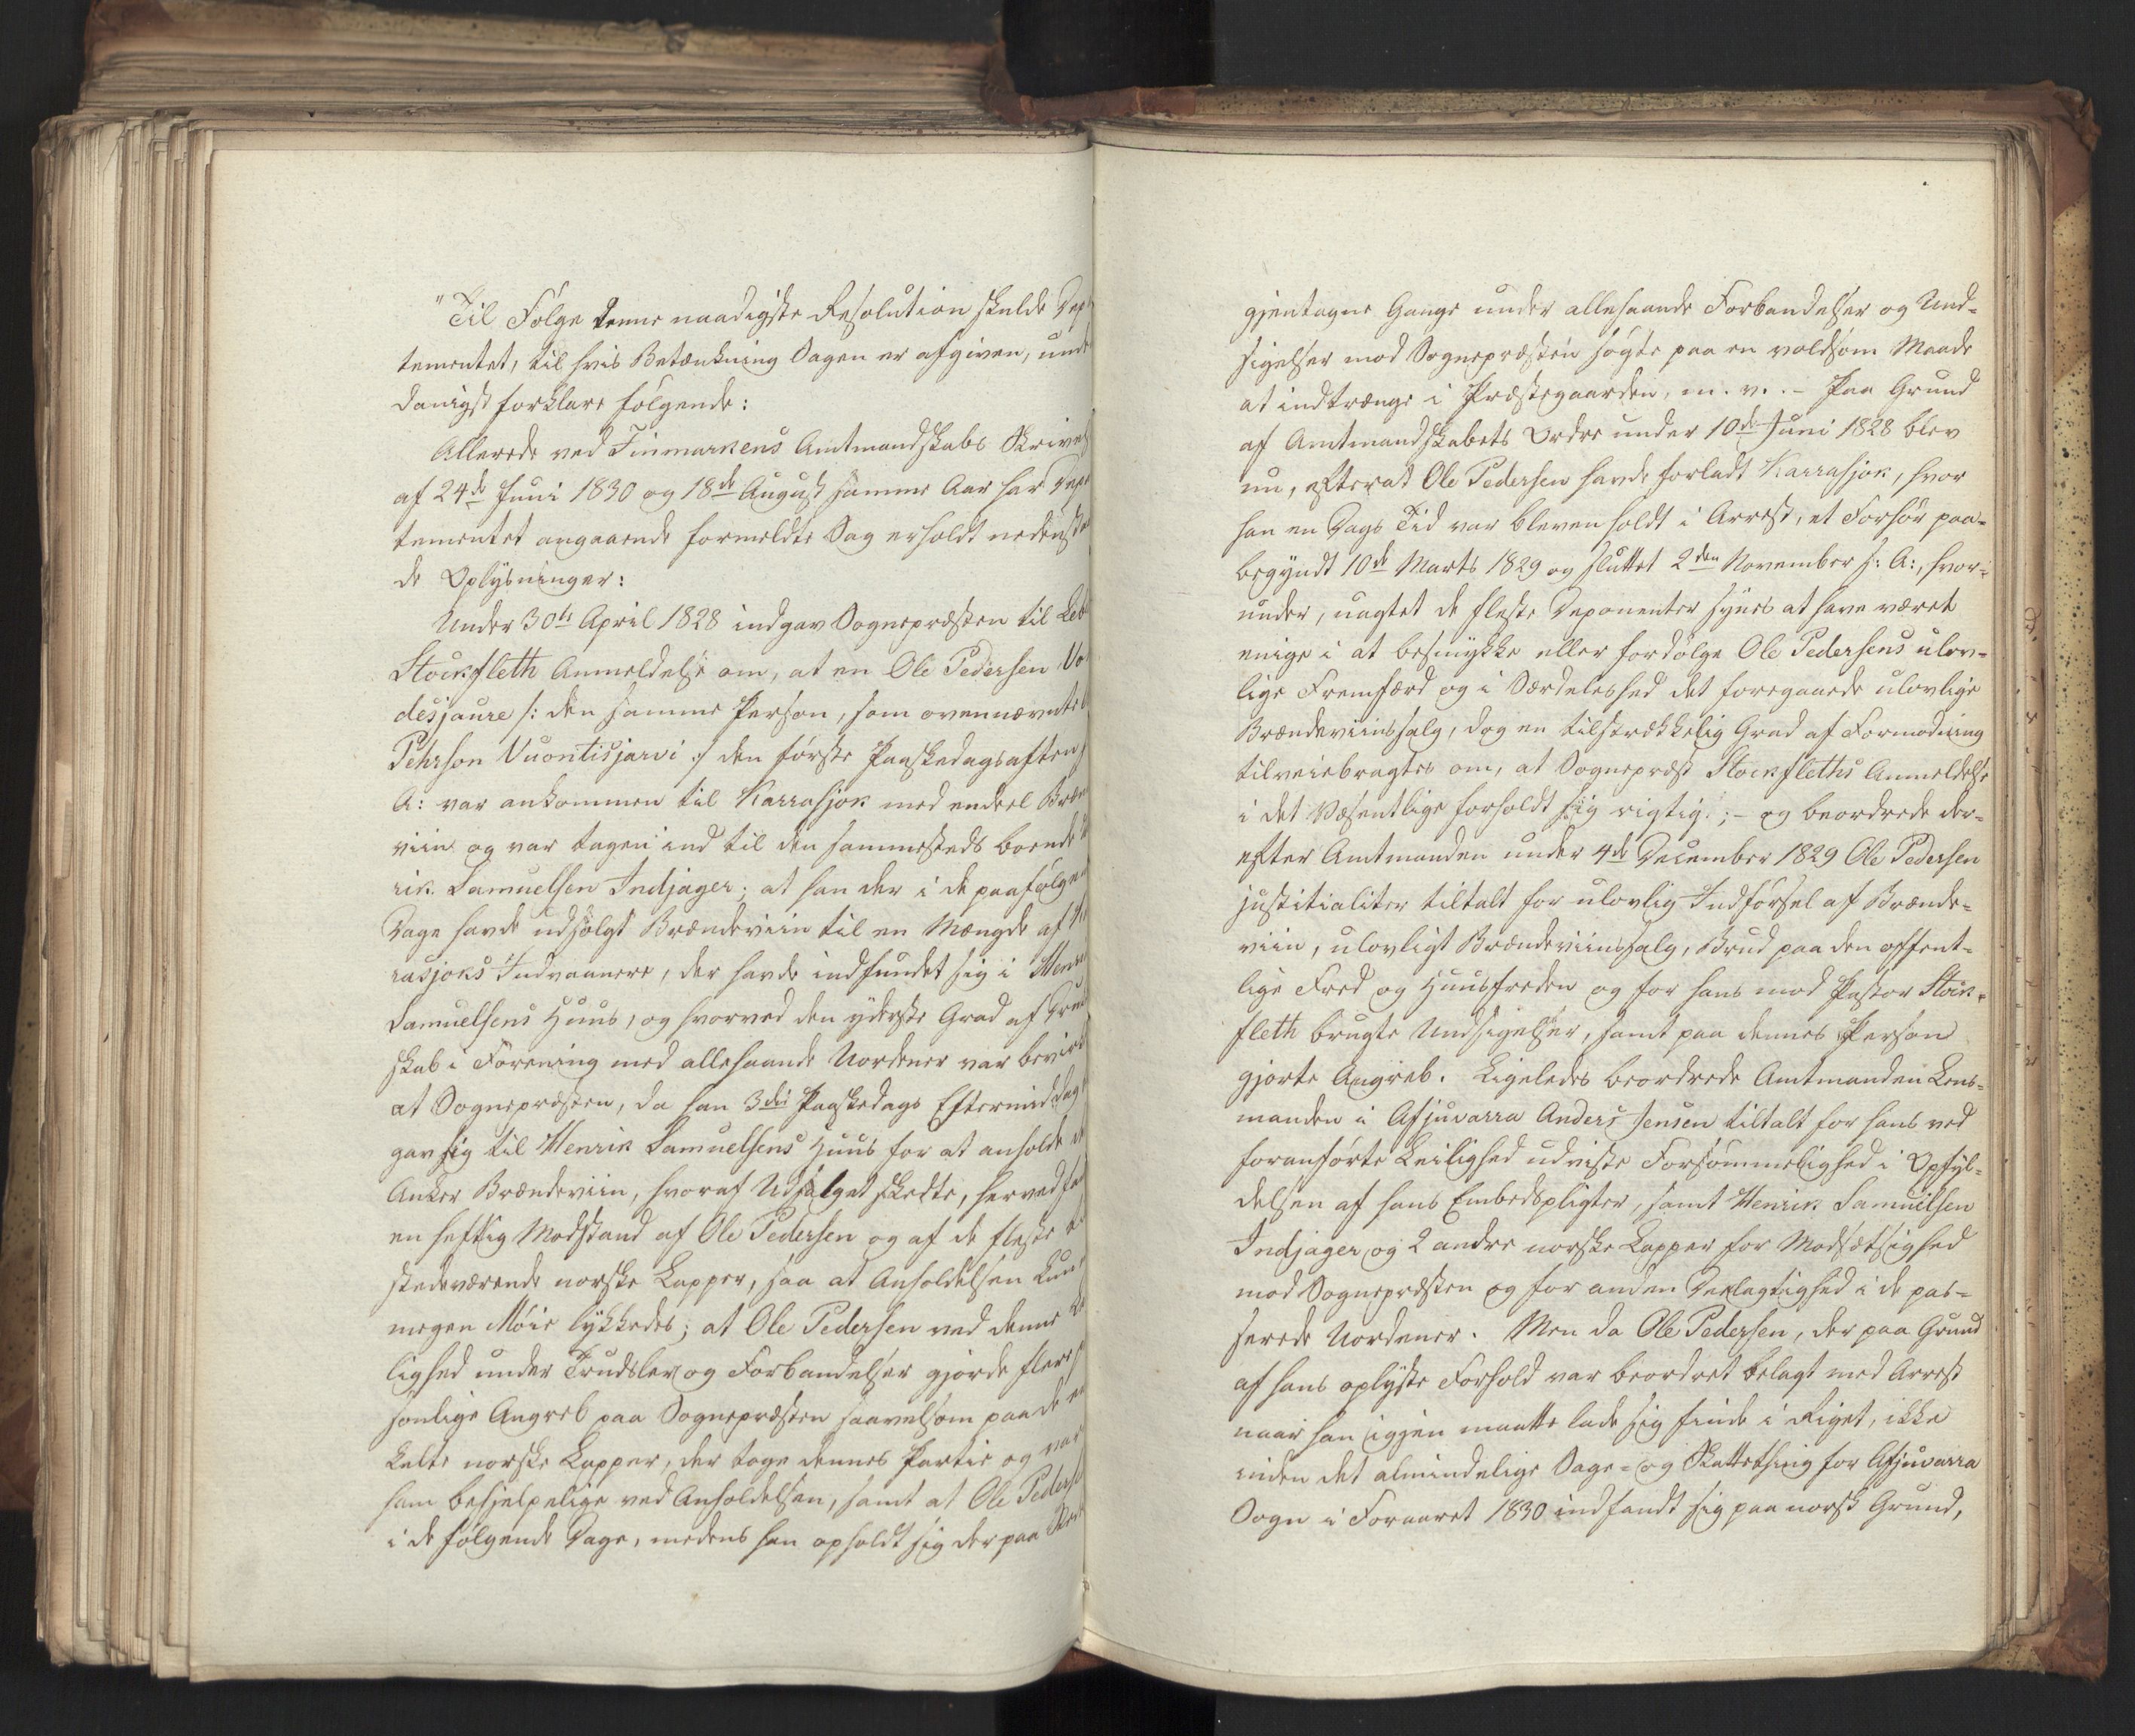 "Til Følge denne naadigste Resolution skulde Dep
tementet, til hvis Betænkning Sagen er afgiven, unde
danigst forklare følgende:
Allerede ved Finmarkens Amtmandskabs Skrivel
af 24de Juni 1830 og 18de August samme Aar har Depa
tementet angaaende formeldte Sag erholdt nedensta
de Oplysninger:
Under 30te April 1828 indgav Sognepræsten til Leb
Stockfleth Anmeldelse om, at en Ole Pedersen Vo
desjaure /: den samme Person, som ovennævnte
Pehrson Vuontisjarvi :/ den første Paaskedagsaften s
A: var ankommen til Karrasjok med endeel Bræn
viin og var tagen ind til den sammesteds boende
rik Samuelsen Indjager; at han der i de paafølgen
Dage havde udsolgt Brændeviin til en Mængde af Ka
rasjoks Indvaanere, der havde indfundet sig i Henri
Samuelsens Huus, og hvorved den yderste Grad af Druk
skab i Forening med allehaande Uordener var bevirk
at Sognepræsten, da han 3die Paaskedags Eftermiddag
gav sig til Henrik Samuelsens Huus for at anholde
Anker Brændeviin, hvoraf Udsalget skedte, herved fa
en heftig Modstand af Ole Pedersen og af de fleste
stedeværende norske Lapper, saa at Anholdelsen kun
megen Møie lykkedes; at Ole Pedersen ved denne Le
lighed under Trudsler og Forbandelser gjorde flere
sonlige Angreb paa Sognepræsten saavelsom paa de en
kelte norske Lapper, der toge dennes Partie og var
ham behjelpelige ved Anholdelsen, samt at Ole Peders
i de følgende Dage, medens han opholdt sig der paa
gjentagne Gange under allehaande Forbandelser og Und-
sigelser mod Sognepræsten søgte paa en voldsom Maade
at indtrænge i Præstegaarden, m. v. - Paa Grund
af Amtmandskabets Ordre under 10de Juni 1828 blev
nu, efterat Ole Pedersen havde forladt Karrasjok, hvor
han en Dags Tid var bleven holdt i Arrest, et Forhør paa-
begyndt 10de Marts 1829 og sluttet 2den November s: A:, hvor-
under, uagtet de fleste Deponenter synes at have været
enige i at besmykke eller fordølge Ole Pedersens ulov-
lige Fremfærd og i Særdeleshed det foregaaede ulovlige
Brændeviinssalg, dog en tilstrækkelig Grad af Formodning
tilveiebragtes om, at Sognepræst Stockfleths Anmeldelse
i det Væsentlige forholdt sig rigtig; - og beordrede der-
efter Amtmanden under 4de December 1829 Ole Pedersen
justitialiter tiltalt for ulovlig Indførsel af Brænde-
viin, ulovligt Brændeviinssalg, Brud paa den offent-
lige Fred og Huusfreden og for hans mod Pastor Stock-
fleth brugte Undsigelser, samt paa dennes Person
gjorte Angreb. Ligeledes beordrede Amtmanden Lens-
manden i Afjuvarra Anders Jensen tiltalt for hans ved
foranførte Leilighed udviste Forsømmelighed i Opfyl-
delsen af hans Embedspligter, samt Henrik Samuelsen
Indjager og 2 andre norske Lapper for Modsætsighed
mod Sognepræsten og for anden Deelagtighed i de pas-
serede Uordener. Men da Ole Pedersen, der paa Grund
af hans oplyste Forhold var beordret belagt med Arrest
naar han igjen maatte lade sig finde i Riget, ikke
inden det almindelige Sage- og Skattething for Afjuvarra
Sogn i Foraaret 1830 indfandt sig paa norsk Grund,